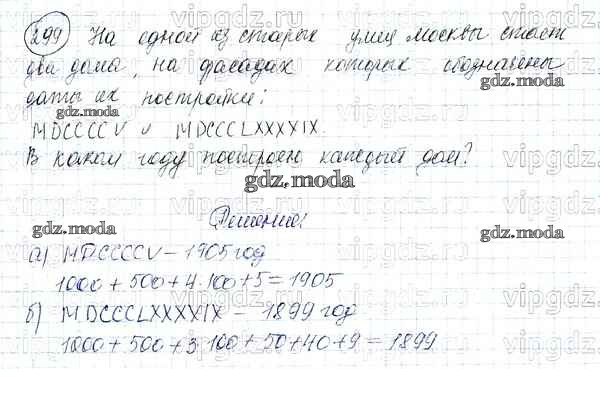 299 На одной из старых улиц Москвы стоят
два дома, на фасадах которых обозначены
даты их постройки:
MDCCCCV и MDCCCLXXXXIX.
В каком году построен каждый дом?
gdz.moda
Решение:
а) MDCCCCV – 1905 год
1000 + 500 + 4·100 + 5 = 1905
б) MDCCCLXXXXIX – 1899 год
1000 + 500 + 3·100 + 50 + 40 + 9 = 1899